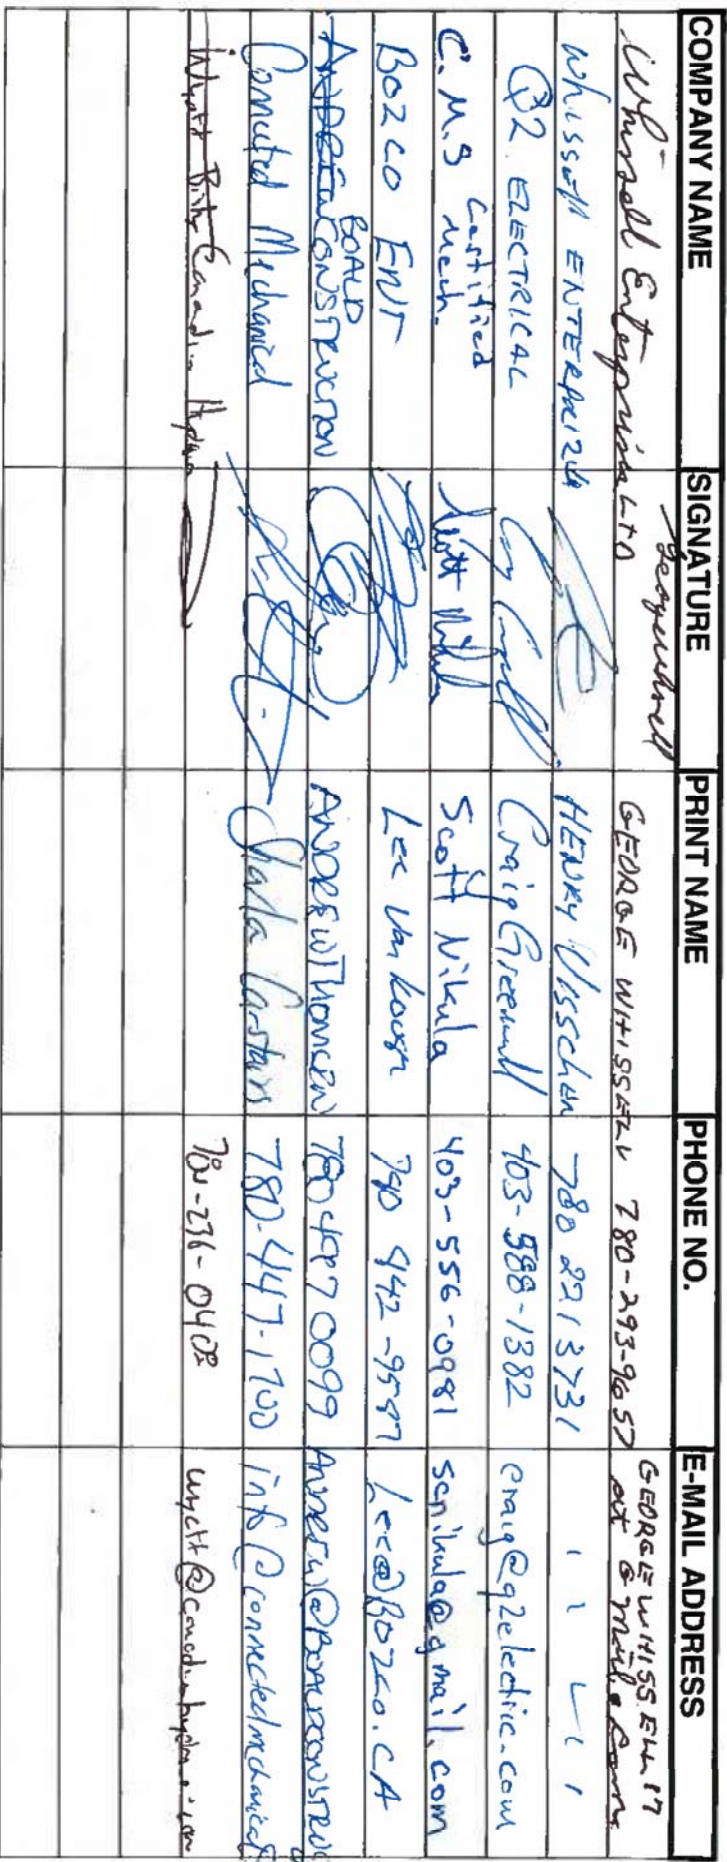 COMPANY NAME SIGNATURE PRINT NAME PHONE NO. E-MAIL ADDRESS
Whissell Enterprises LTD GEORGE WHISSELL 780-293-9657 GEORGE WHISSELL 17 at G mail. com
Whissell ENTERPRIZES HENRY Visscher 780 221 3731 11 11
Q2 ELECTRICAL Craig 403-588-1382 craig@q2electric.com
C.M.S Certified Mech. Scott Nikula Scott Nikula 403-556-0981 scnikula@gmail.com
BOZCO ENT Lee Van 780 942-9587 Lee@BOZCO.CA
BOALD CONSTRUCTION ANDREW THOMSEN 0099 ANDREW@BOALDCONSTRUC
Connected Mechanical Sharla Carstairs 780-447-1700 info@connectedmechanical
Wyatt Canadian 780-236-0408